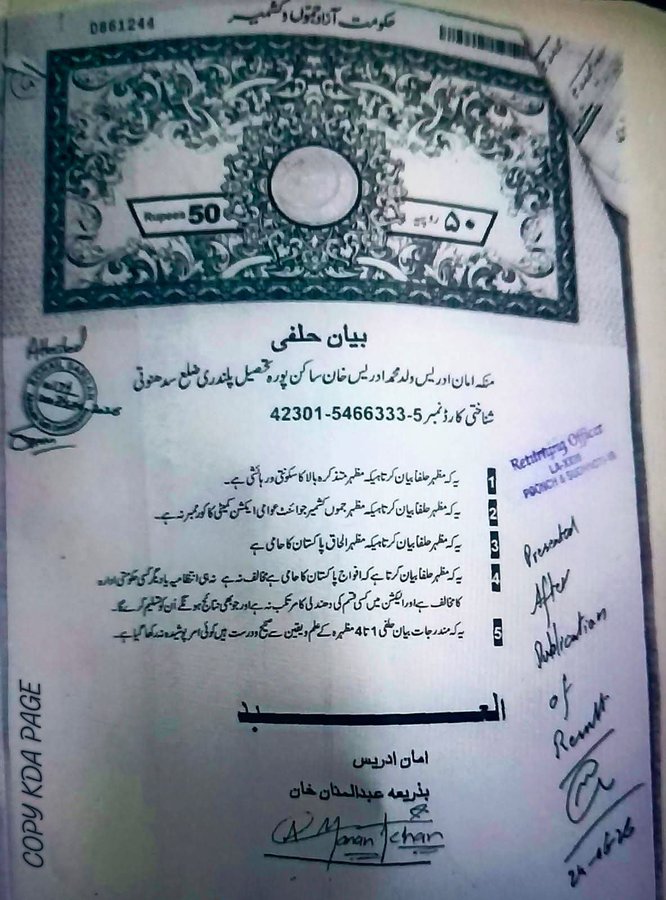 D861244
حکومت آزاد جموں و کشمیر
Rupees 50
۵۰ روپے
بیان حلفی
Attested
منکہ امان ادریس ولد محمد ادریس خان ساکن پورہ تحصیل پلندری ضلع سدھنوتی
شناختی کارڈ نمبر 5-5466333-42301
Returning Officer
LA-XXIII
POONCH & SUDHNOTI
1 یہ کہ مظہر حلفا بیان کرتا ہیکہ مظہر متذکرہ بالا کا سکونتی ور ہائشی ہے۔
2 یہ کہ مظہر حلفا بیان کرتا ہیکہ مظہر جموں کشمیر جوائنٹ عوامی ایکشن کمیٹی کا کور ممبر نہ ہے۔
3 یہ کہ مظہر حلفا بیان کرتا ہیکہ مظہر الحاق پاکستان کا حامی ہے
4 یہ کہ مظہر حلفا بیان کرتا ہے کہ افواج پاکستان کا حامی ہے مخالف نہ ہے نہ ہی انتظامیہ یا دیگر کسی حکومتی ادارہ
کا مخالف ہے اور الیکشن میں کسی قسم کی دھندلی کا مرتکب نہ ہے اور جو بھی نتائج ہونگے اُن کو تسلیم کرے گا۔
5 یہ کہ مندرجات بیان حلفی 1 تا 4 مظہرہ کے علم و یقین سے صحیح و درست ہیں کوئی امر پوشیدہ نہ رکھا گیا ہے۔
Presented
After
Publication
of
Result
24-06-26
العبد
امان ادریس
بذریعہ عبدالمنان خان
Manan Khan
COPY KDA PAGE